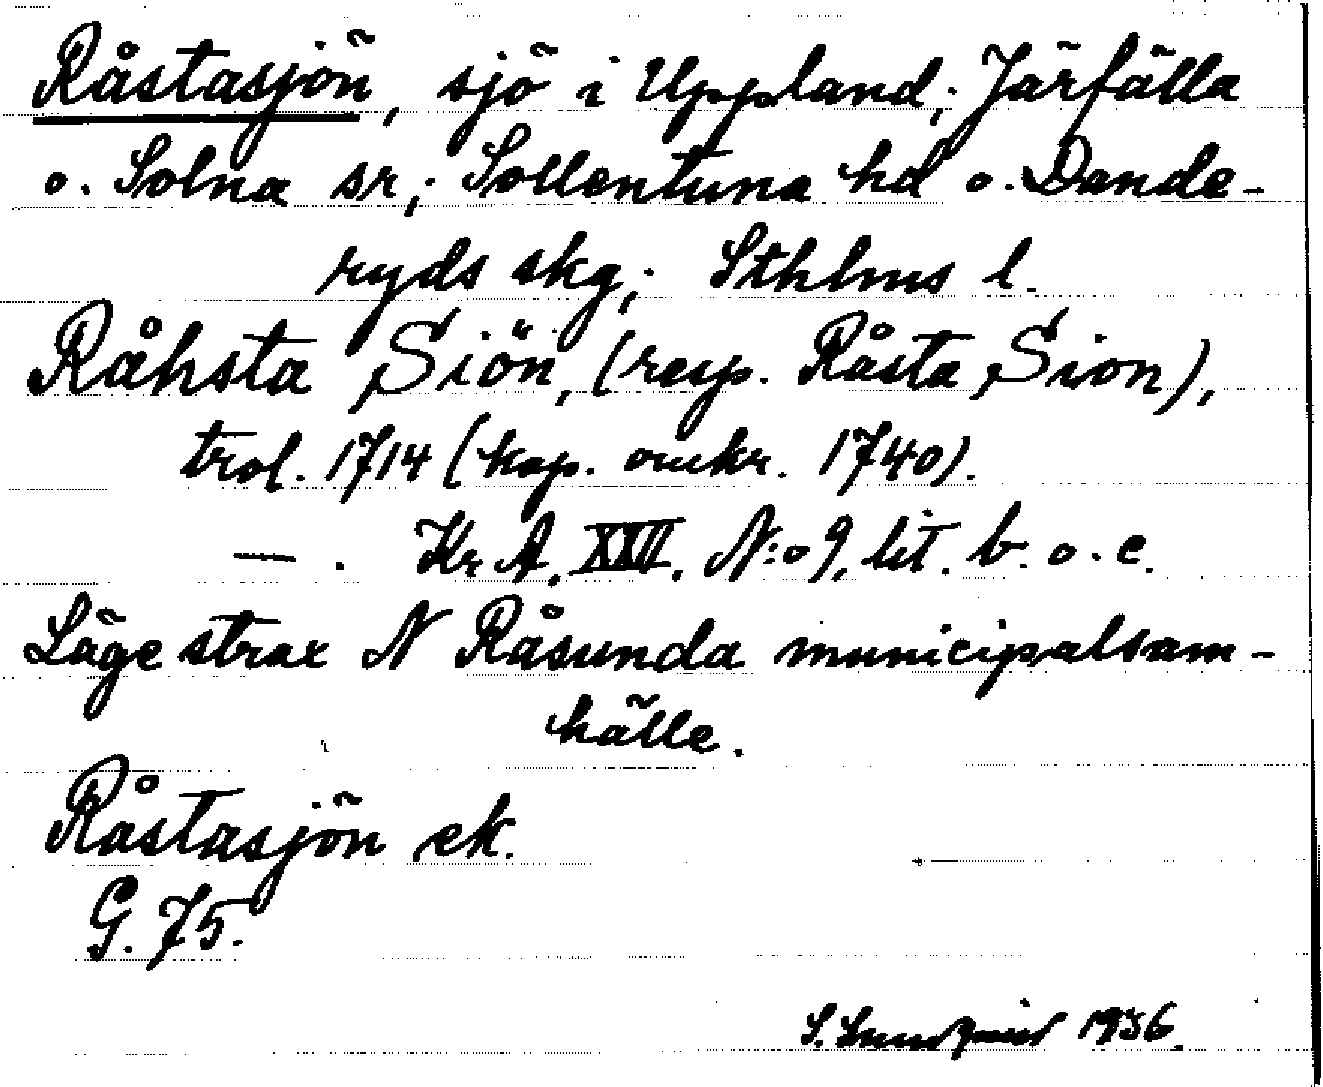 Råstasjön, sjö i Uppland; Järfälla
o. Solna sr; Sollentuna hd o. Dande-
ryds skg; Sthlms l.
Råhsta Siön, (resp. Råsta Sion),
trol. 1714 (kop. omkr. 1740).
— . Kr A, XXII, N:o 9, lit. b. o. c.
Läge strax N Råsunda municipalsam-
hälle.
Råstasjön ek.
G. 75.
S. Lundquist 1936.